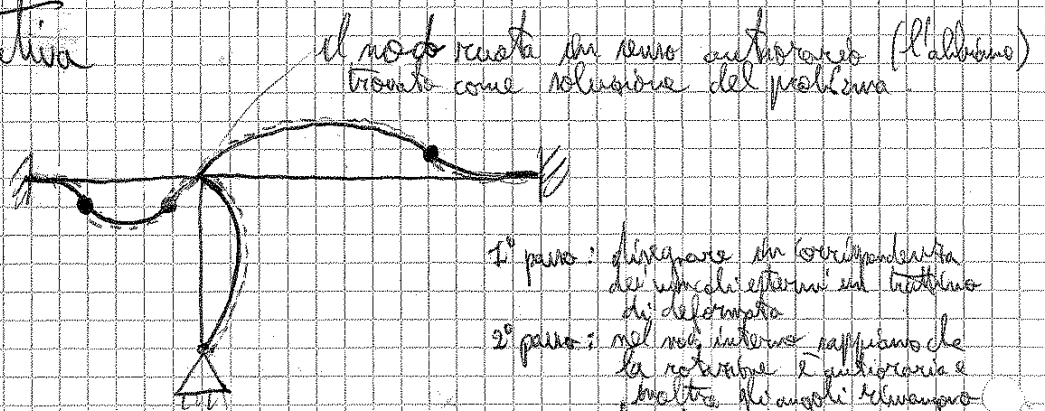 tiva
il nodo ruota in senso antiorario (l'abbiamo
trovato come soluzione del problema)
1° passo: disegnare in corrispondenza
dei vincoli esterni un trattino
di deformata
2° passo: nel nodo interno sappiamo che
la rotazione è antioraria e
inoltre gli angoli rimangono